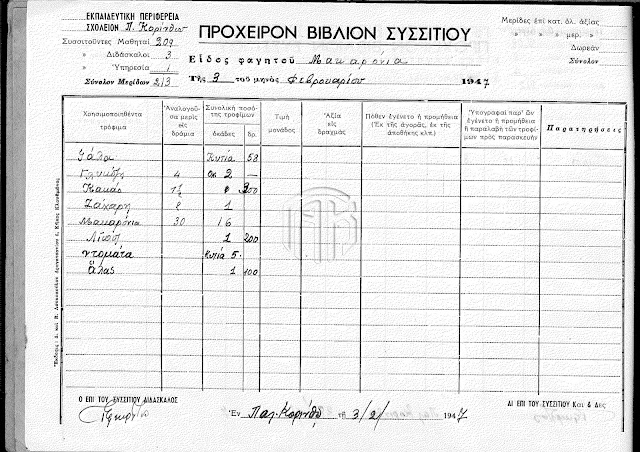 ΕΚΠΑΙΔΕΥΤΙΚΗ ΠΕΡΙΦΕΡΕΙΑ
ΣΧΟΛΕΙΟΝ Π. Κορίνθου
Συσσιτοῦντες Μαθηταί 209
» Διδάσκαλοι 3
» Ὑπηρεσία 1
Σύνολον Μερίδων 213
ΠΡΟΧΕΙΡΟΝ ΒΙΒΛΙΟΝ ΣΥΣΣΙΤΙΟΥ
Εἶδος φαγητοῦ Μακαρόνια
Τῆς 3 τοῦ μηνὸς Φεβρουαρίου 1947
Μερίδες ἐπὶ κατ. δλ. ἀξίας
» » μερ. »
Δωρεάν
Σύνολον
Χρησιμοποιηθέντα τρόφιμα
Ἀναλογοῦσα μερὶς εἰς δράμια
Συνολικὴ ποσότης τροφίμων
ὀκάδες δρ.
Τιμὴ μονάδος
Ἀξία εἰς δραχμὰς
Πόθεν ἐγένετο ἡ προμήθεια (Ἐκ τῆς ἀγορᾶς, ἐκ τῆς ἀποθήκης κλπ.)
Ὑπογραφαὶ παρ' ὧν ἐγένετο ἡ προμήθεια ἢ παραλαβὴ τῶν τροφίμων πρὸς παρασκευὴν
Παρατηρήσεις
Γάλα Κυτία 58
4 οκ 2 —
Κακάο
Ζάχαρη 1
Μακαρόνια 30 16
Λίπη 1 200
ντομάτα Κυτία 5
ἅλας 1 100
Ο ΕΠΙ ΤΟΥ ΣΥΣΣΙΤΙΟΥ ΔΙΔΑΣΚΑΛΟΣ
Ἐν Παλ. Κορίνθῳ τῇ 3/2/ 1947
ΑΙ ΕΠΙ ΤΟΥ ΣΥΣΣΙΤΙΟΥ Και & Δες